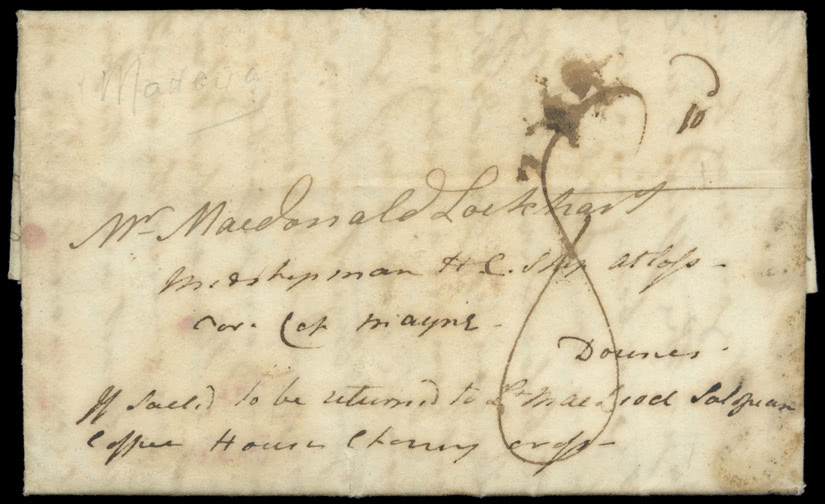 Madeira
10
Mr Macdonald Lockhart
Midshipman H. C. Ship Atlass
Car. Cap Mayne
Downes.
If Sailed to be returned to Macleod Salopian
Coffee House Charing Cross